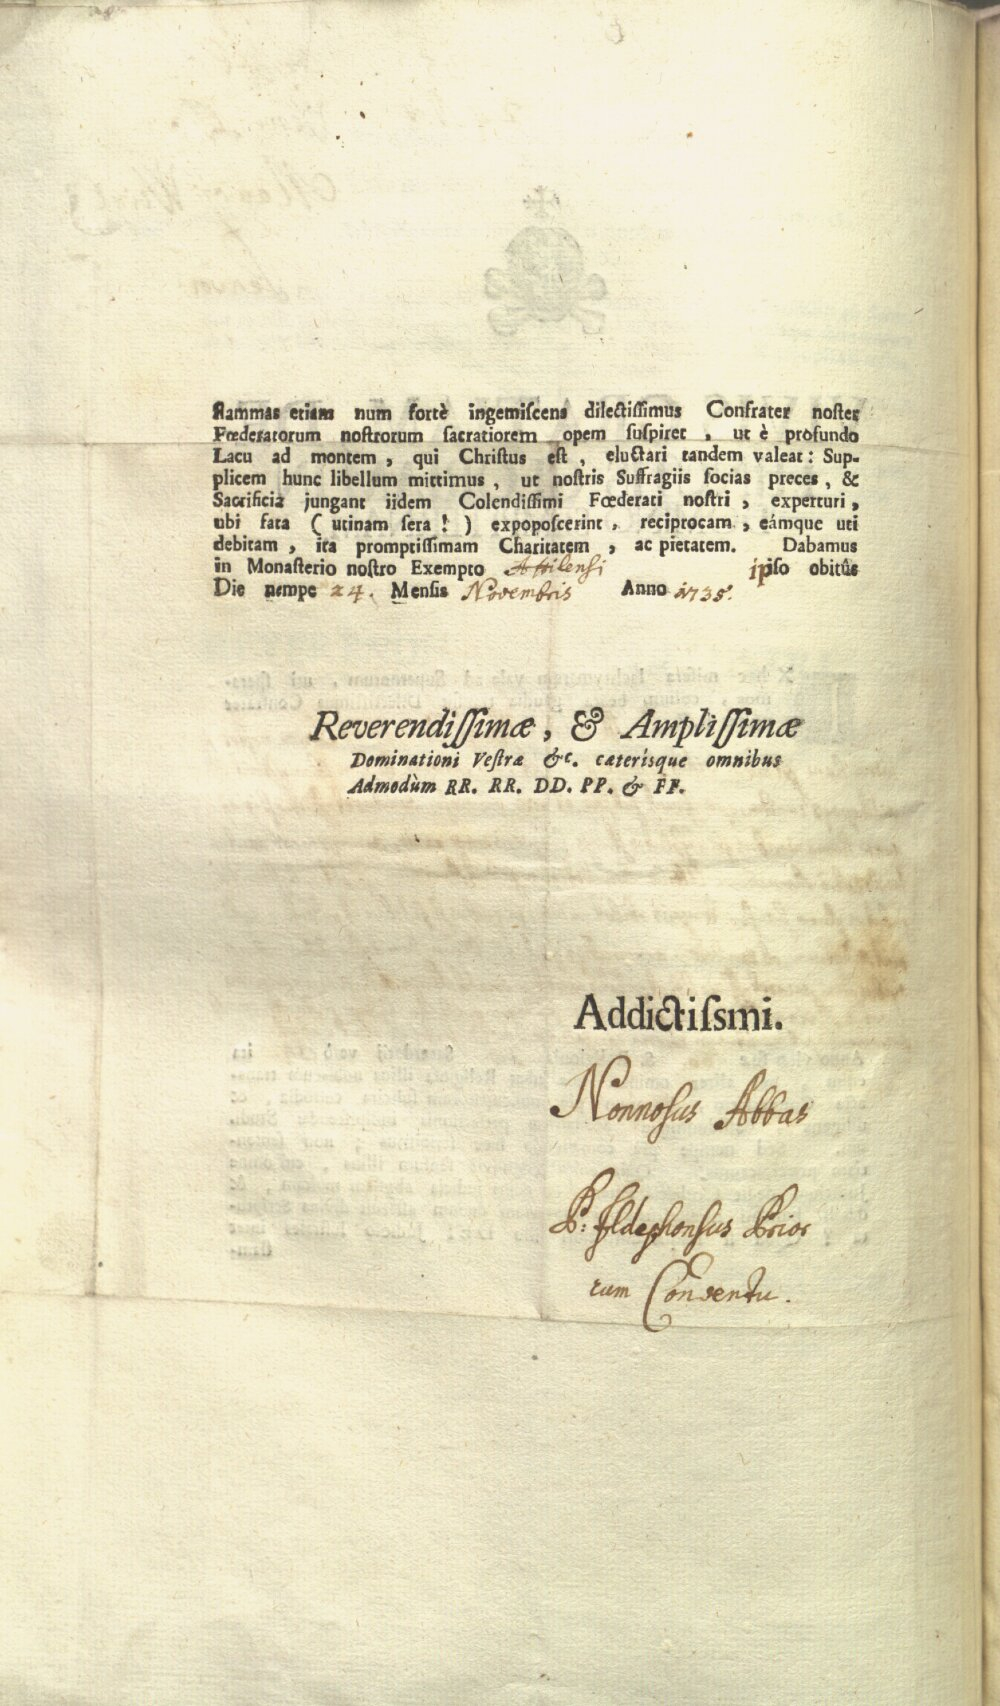 flammas etiam num fortè ingemiscens dilectissimus Confrater noster
Fœderatorum nostrorum sacratiorem opem suspiret , ut è profundo
Lacu ad montem , qui Christus est , eluctari tandem valeat : Sup-
plicem hunc libellum mittimus , ut nostris Suffragiis socias preces , &
Sacrificia jungant iidem Colendissimi Fœderati nostri , experturi ,
ubi fata ( utinam sera ! ) expoposcerint , reciprocam , eámque uti
debitam , ita promptissimam Charitatem , ac pietatem. Dabamus
in Monasterio nostro Exempto Attilensi ipso obitûs
Die nempe 24. Mensis Novembris Anno 1735.
Reverendissimæ , & Amplissimæ
Dominationi Vestræ &c. cæterisque omnibus
Admodùm RR. RR. DD. PP. & FF.
Addictissmi.
Nonnosus Abbas
P: Ildephonsus Prior
cum Conventu.